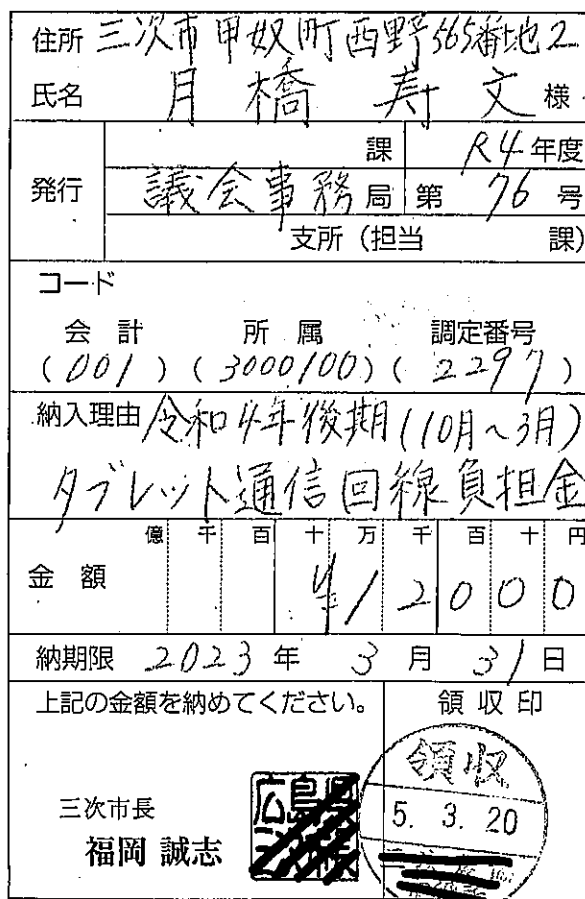 住所 三次市甲奴町西野565番地2
氏名 月橋寿文 様
発行
課 R4年度
議会事務局 第76号
支所(担当 課)
コード
会計 所属 調定番号
(001) (3000100) (2297)
納入理由 令和4年後期(10月~3月)
タブレット通信回線負担金
億 千 百 十 万 千 百 十 円
金額 ¥12000
納期限 2023年3月31日
上記の金額を納めてください。 領収印
領収
5. 3. 20
三次市長
福岡 誠志
広島県